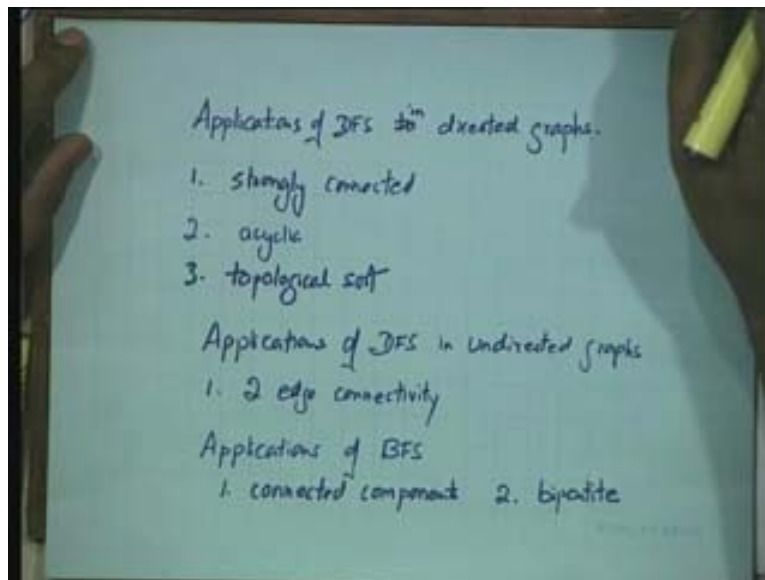 Applications of DFS in directed graphs.
1. strongly connected
2. acyclic
3. topological sort
Applications of DFS in undirected graphs
1. 2 edge connectivity
Applications of BFS
1. connected component 2. bipartite